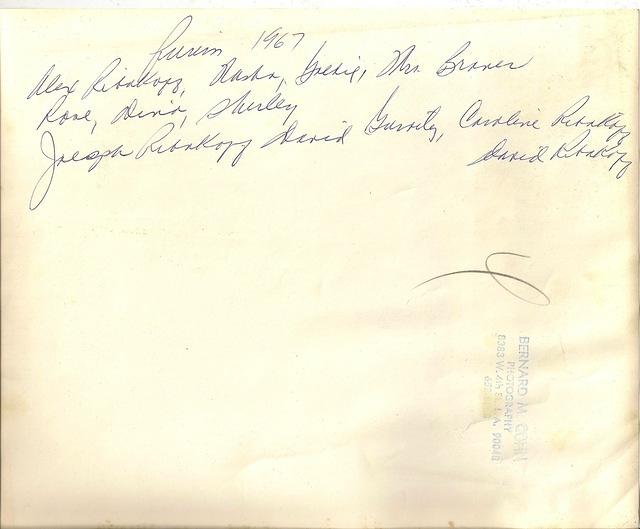 Purim 1967
Alex Ribakopf, Masha, Goldie, Mrs Braver
Rose, Dina, Shirley
Joseph Ribakopf David Gurvitz, Caroline Ribakopf
David Ribakopf
BERNARD M. COHN
PHOTOGRAPHY
8383 W. 4th St. L.A. 90048